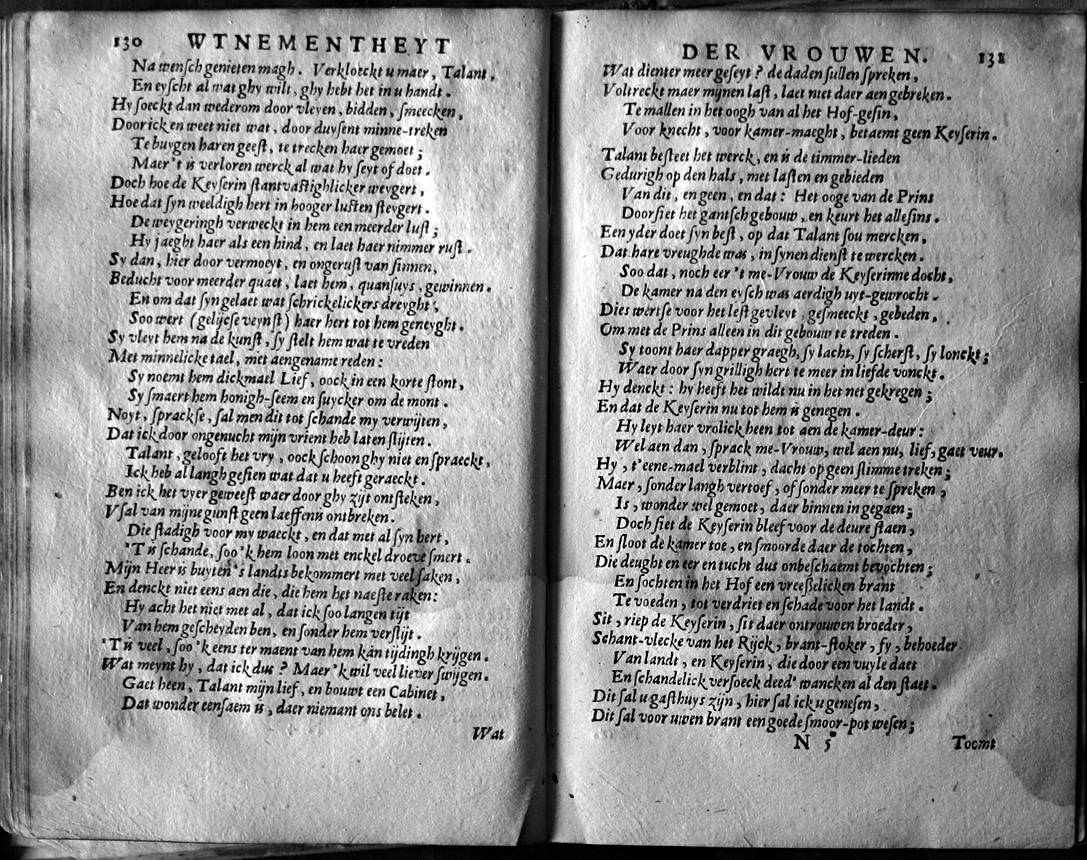 130 WTNEMENTHEYT
Na wensch genieten magh. Verkloeckt u maer, Talant,
En eyscht al wat ghy wilt, ghy hebt het in u handt.
Hy soeckt dan wederom door vleyen, bidden, smeecken,
Door ick en weet niet wat, door duysent minne-treken
Te buygen haren geest, te trecken haer gemoet;
Maer 't is verloren werck al wat hy seyt of doet.
Doch hoe de Keyserin stantvastighlicker weygert,
Hoe dat syn weeldigh hert in hooger lusten steygert.
De weygeringh verweckt in hem een meerder lust;
Hy jaeght haer als een hind, en laet haer nimmer rust.
Sy dan, hier door vermoeyt, en ongerust van sinnen,
Beducht voor meerder quaet, laet hem, quansuys, gewinnen.
En om dat syn gelaet wat schrickelickers dreyght,
Soo wert (gelijcse veynst) haer hert tot hem geneyght.
Sy vleyt hem na de kunst, sy stelt hem wat te vreden
Met minnelicke tael, met aengename reden:
Sy noemt hem dickmael Lief, oock in een korte stont,
Sy smaert hem honigh-seem en suycker om de mont.
Noyt, sprackse, sal men dit tot schande my verwijten,
Dat ick door ongenucht mijn vrient heb laten slijten.
Talant, gelooft het vry, oock schoon ghy niet en spraeckt,
Ick heb al langh gesien wat dat u heeft geraeckt.
Ben ick het vyer geweest waer door ghy zijt ontsteken,
V sal van mijne gunst geen laeffenis ontbreken.
Die stadigh voor my waeckt, en dat met al syn hert,
'T is schande, soo 'k hem loon met enckel droeve smert.
Mijn Heer is buyten 's landts bekommert met veel saken,
En denckt niet eens aen die, die hem het naeste raken:
Hy acht het niet met al, dat ick soo langen tijt
Van hem gescheyden ben, en sonder hem verslijt.
'T is veel, soo 'k eens ter maent van hem kan tijdingh krijgen.
Wat meynt hy, dat ick dus? Maer 'k wil veel liever swijgen.
Gaet heen, Talant mijn lief, en bouwt een Cabinet,
Dat wonder eensaem is, daer niemant ons belet.
Wat
DER VROUWEN. 131
Wat dienter meer geseyt? de daden sullen spreken,
Voltreckt maer mijnen last, laet niet daer aen gebreken.
Te mallen in het oogh van al het Hof-gesin,
Voor knecht, voor kamer-maeght, betaemt geen Keyserin.
Talant besteet het werck, en is de timmer-lieden
Gedurigh op den hals, met lasten en gebieden
Van dit, en geen, en dat: Het ooge van de Prins
Doorsiet het gantsch gebouw, en keurt het allesins.
Een yder doet syn best, op dat Talant sou mercken,
Dat hare vreughde was, in synen dienst te wercken.
Soo dat, noch eer 't me-Vrouw de Keyserinne docht,
De kamer na den eysch was aerdigh uyt-gewrocht.
Dies wertse voor het lest gevleyt, gesmeeckt, gebeden,
Om met de Prins alleen in dit gebouw te treden.
Sy toont haer dapper graegh, sy lacht, sy scherst, sy lonckt;
Waer door syn grilligh hert te meer in liefde vonckt.
Hy denckt: hy heeft het wildt nu in het net gekregen;
En dat de Keyserin nu tot hem is genegen.
Hy leyt haer vrolick heen tot aen de kamer-deur:
Wel aen dan, sprack me-Vrouw, wel aen nu, lief, gaet veur.
Hy, t'eene-mael verblint, dacht op geen slimme treken;
Maer, sonder langh vertoef, of sonder meer te spreken,
Is, wonder wel gemoet, daer binnen in gegaen;
Doch siet de Keyserin bleef voor de deure staen,
En sloot de kamer toe, en smoorde daer de tochten,
Die deught en eer en tucht dus onbeschaemt bevochten;
En sochten in het Hof een vreesselicken brant
Te voeden, tot verdriet en schade voor het landt.
Sit, riep de Keyserin, sit daer ontrouwen broeder,
Schant-vlecke van het Rijck, brant-stoker, fy, behoeder
Van landt, en Keyserin, die door een vuyle daet
En schandelick versoeck deed' wancken al den staet.
Dit sal u gasthuys zijn, hier sal ick u genesen,
Dit sal voor uwen brant een goede smoor-pot wesen;
N 5 Toomt